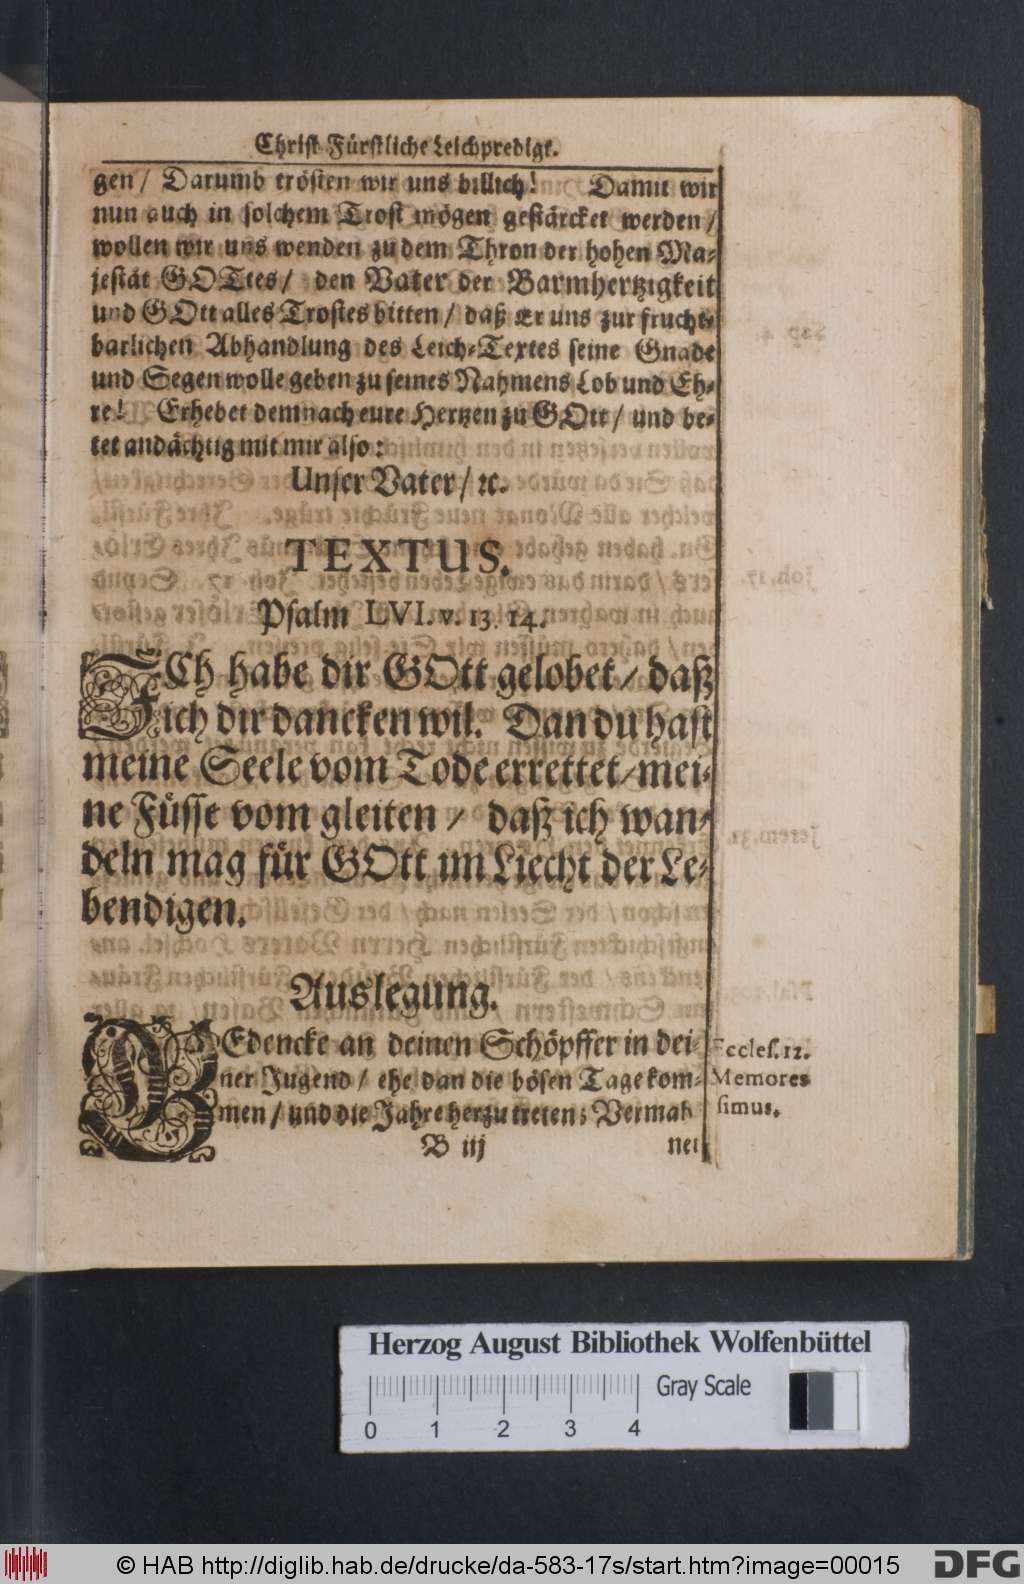 Christ Fürstliche Leichpredigt.
gen / Darumb trösten wir uns billich! Damit wir
nun auch in solchem Trost mögen gestärcket werden /
wollen wir uns wenden zu dem Thron der hohen Ma-
jestät GOTtes / den Vater der Barmhertzigkeit
und GOtt alles Trostes bitten / daß Er uns zur frucht-
barlichen Abhandlung des Leich-Textes seine Gnade
und Segen wolle geben zu seines Nahmens Lob und Eh-
re! Erhebet demnach eure Hertzen zu GOtt / und be-
tet andächtig mit mir also:
Unser Vater / ꝛc.
TEXTUS.
Psalm LVI. v. 13. 14.
ICh habe dir GOtt gelobet / daß
ich dir dancken wil. Dan du hast
meine Seele vom Tode errettet / mei-
ne Füsse vom gleiten / daß ich wan-
deln mag für GOtt im Liecht der Le-
bendigen.
Auslegung.
GEdencke an deinen Schöpffer in dei-
ner Jugend / ehe dan die bösen Tage kom-
men / und die Jahre herzu treten; Vermah-
Eccles. 12.
Memores
simus.
B iij
nen
Herzog August Bibliothek Wolfenbüttel
Gray Scale
0 1 2 3 4
© HAB http://diglib.hab.de/drucke/da-583-17s/start.htm?image=00015
DFG